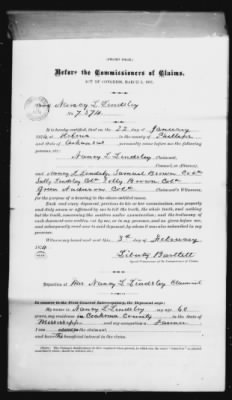 [FRONT PAGE.]
Before the Commissioners of Claims.
ACT OF CONGRESS, MARCH 3, 1871.
Nancy L. Lindsley
No 7.574
It is hereby certified, that on the 22 day of January
1874, at Helena in the County of Phillips
and State of Arkansas personally came before me the following
persons, viz:
Nancy L. Lindsley, Claimant,
Counsel, or (Attorney),
and Nancy L. Lindsley Samuel Brown Cold
Sally Lindsley Cold Dolly Brown Cold
Green Anderson Cold Claimant's Witnesses,
for the purpose of a hearing in the above entitled cause.
Each and every deponent, previous to his or her examination, was properly
and duly sworn or affirmed by me to tell the truth, the whole truth, and nothing
but the truth, concerning the matters under examination; and the testimony of
each deponent was written out by me, or in my presence, and as given before me, and
subsequently read over to said deponent, by whom it was also signed in my
presence.
Witness my hand and seal this 3d day of February
1874
Liberty Bartlett
Special Commissioner of the Commissioners of Claims.
Deposition of Mrs Nancy L. Lindsley Claimant
In answer to the First General Interrogatory, the Deponent says:
My name is Nancy L. Lindsley my age 60
years, my residence in Coahoma County in the State of
Mississippi and my occupation a Farmer
I am the claimant,
and have the beneficial interest in the claim.